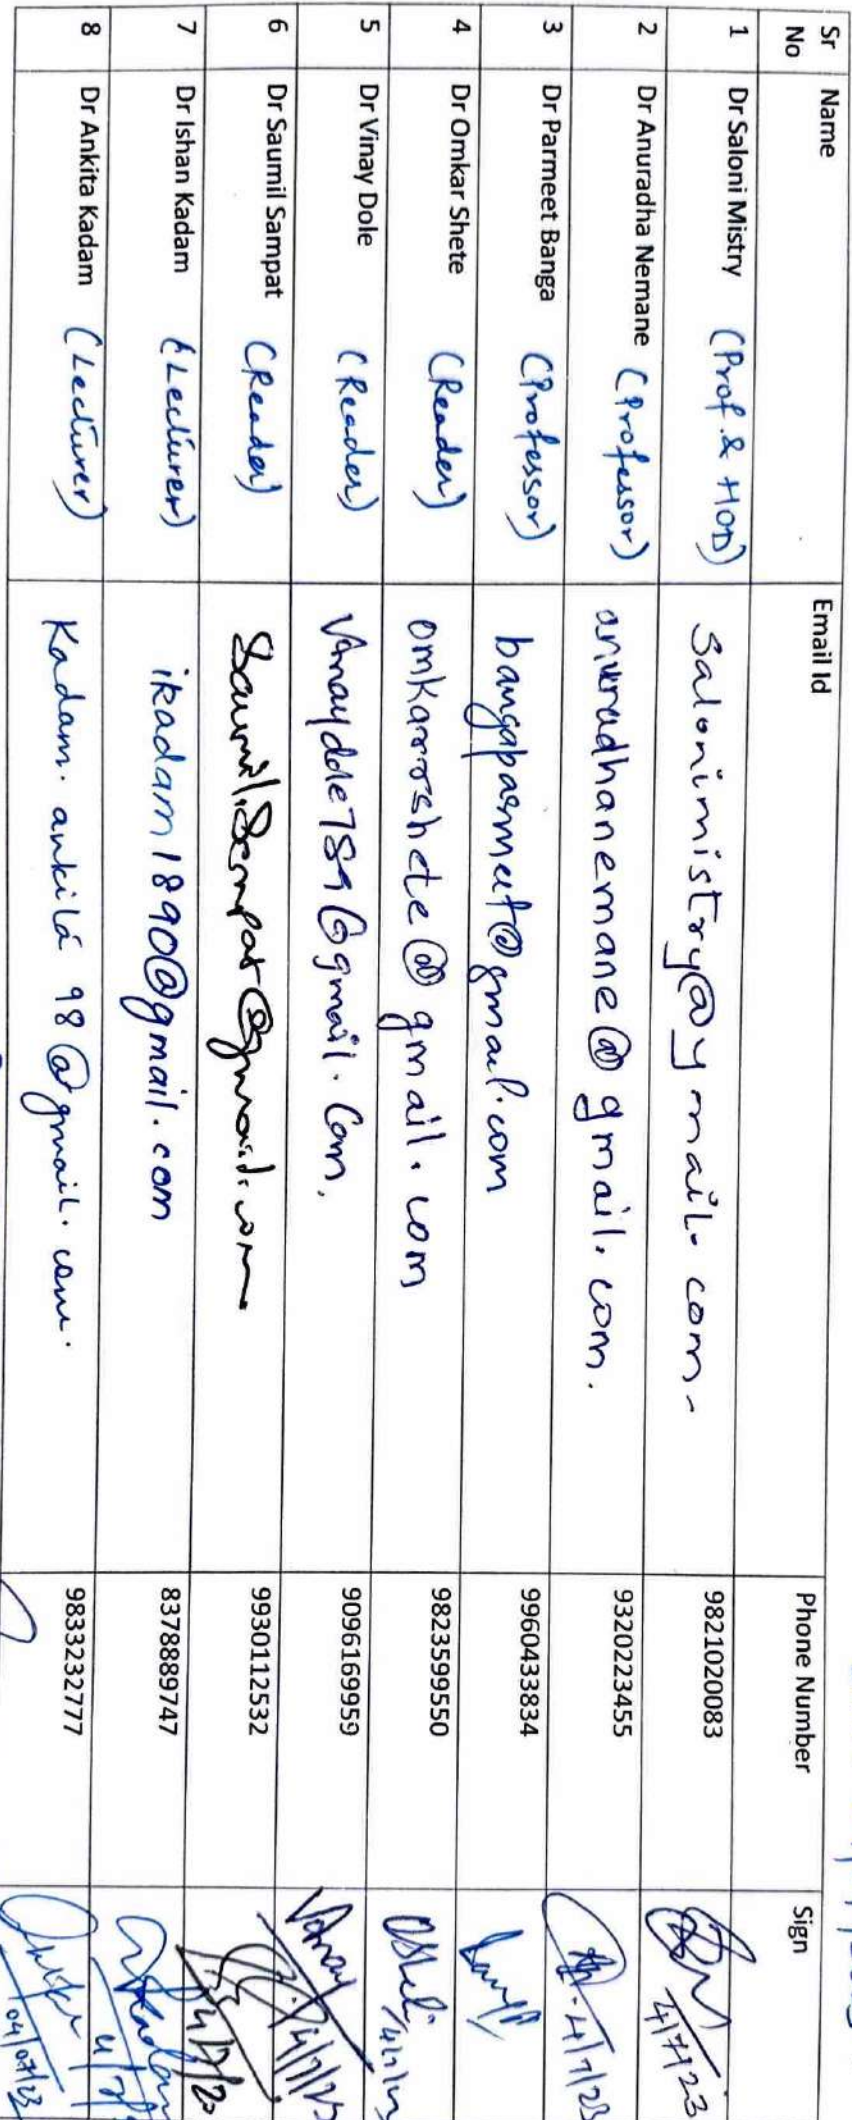 Sr No Name Email Id Phone Number Sign
1 Dr Saloni Mistry (Prof. & HOD) salonimistry@ymail.com 9821020083 4/7/23
2 Dr Anuradha Nemane (Professor) anuradhanemane@gmail.com. 9320223455 4/7/23
3 Dr Parmeet Banga (Professor) bangaparmeet@gmail.com 9960433834
4 Dr Omkar Shete (Reader) omkarrshete@gmail.com 9823599550
5 Dr Vinay Dole (Reader) Vinaydole789@gmail.com. 9096169959 Vinay
6 Dr Saumil Sampat (Reader) Saumil.Sampat@gmail.com 9930112532
7 Dr Ishan Kadam (Lecturer) ikadam1890@gmail.com 8378889747
8 Dr Ankita Kadam (Lecturer) Kadam.ankita98@gmail.com. 9833232777 04/07/23